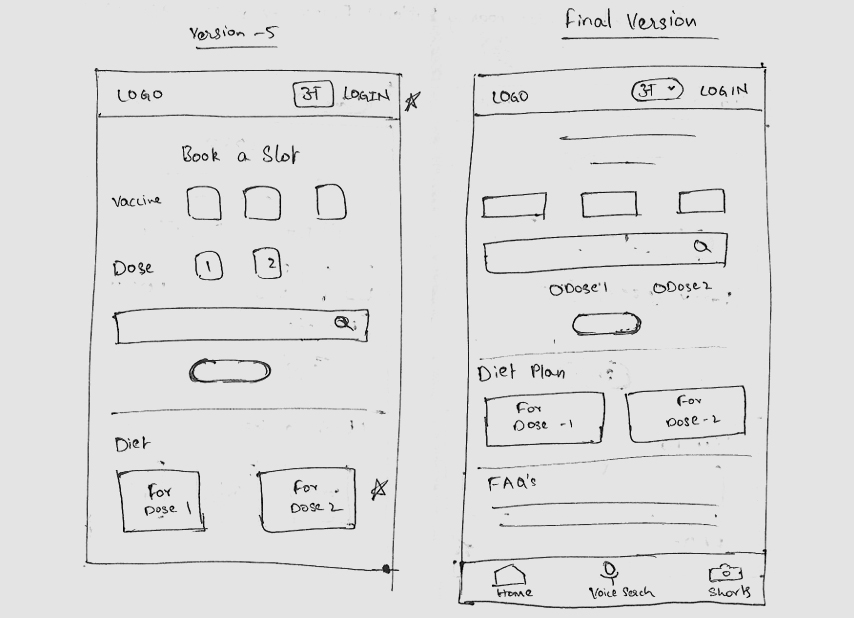 Version -5
LOGO अ LOGIN
Book a Slot
Vaccine
Dose 1 2
Diet
For
Dose 1
For
Dose 2
Final Version
LOGO अ LOGIN
Dose 1 Dose 2
Diet Plan
For
Dose -1
For
Dose -2
FAQ's
Home Voice Serch Shorts